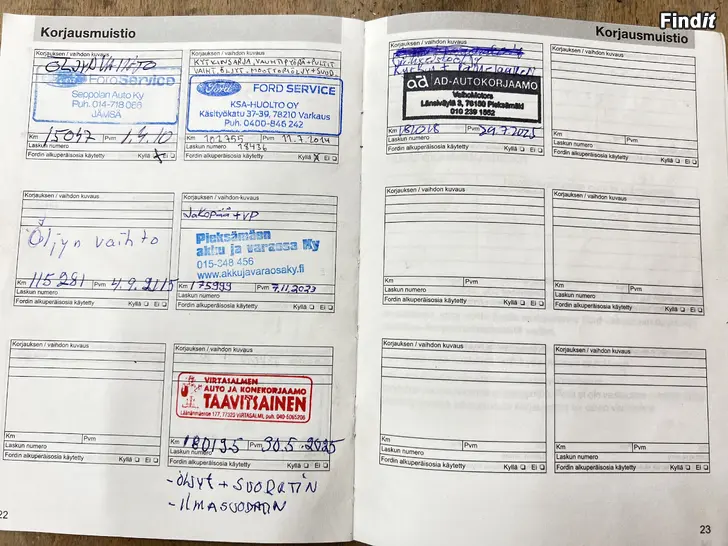 Findit
Korjausmuistio
Korjauksen / vaihdon kuvaus
ÖLJYNVAIHTO
Ford Service
Seppolan Auto Ky
Puh. 014-718 066
JÄMSÄ
Km 15047 Pvm 1.4.10
Laskun numero
Fordin alkuperäisosia käytetty Kyllä Ei
Korjauksen / vaihdon kuvaus
KYTKINSARJA, VAUHTIPYÖRÄ+PULTIT
VAIHT. ÖLJYT, MOOTTORIÖLJY+SUOD.
Ford FORD SERVICE
KSA-HUOLTO OY
Käsityökatu 37-39, 78210 Varkaus
Puh. 0400-846 242
Km 102755 Pvm 11.7.2014
Laskun numero 18436
Fordin alkuperäisosia käytetty Kyllä Ei
Korjauksen / vaihdon kuvaus
Öljyn vaihto
Km 115281 Pvm 4.9.2115
Laskun numero
Fordin alkuperäisosia käytetty Kyllä Ei
Korjauksen / vaihdon kuvaus
Jakopää + VP
Pieksämäen
akku ja varaosa Ky
015-348 456
www.akkujavaraosaky.fi
Km 175999 Pvm 7.11.2023
Laskun numero
Fordin alkuperäisosia käytetty Kyllä Ei
Korjauksen / vaihdon kuvaus
Km Pvm
Laskun numero
Fordin alkuperäisosia käytetty Kyllä Ei
Korjauksen / vaihdon kuvaus
VIRTASALMEN
AUTO JA KONEKORJAAMO
TAAVITSAINEN
Läänänmäentie 177, 77320 VIRTASALMI, puh. 040-5065206
Km 180195 Pvm 30.5.2025
Laskun numero
Fordin alkuperäisosia käytetty Kyllä Ei
- ÖLJYT + SUODATIN
- ILMASUODATIN
22
Korjausmuistio
Korjauksen / vaihdon kuvaus
AD AD-AUTOKORJAAMO
VaihoMotors
Länsiväylä 3, 76150 Pieksämäki
010 239 1552
Km 181018 Pvm 29.7.2025
Laskun numero
Fordin alkuperäisosia käytetty Kyllä Ei
Korjauksen / vaihdon kuvaus
Km Pvm
Laskun numero
Fordin alkuperäisosia käytetty Kyllä Ei
Korjauksen / vaihdon kuvaus
Km Pvm
Laskun numero
Fordin alkuperäisosia käytetty Kyllä Ei
Korjauksen / vaihdon kuvaus
Km Pvm
Laskun numero
Fordin alkuperäisosia käytetty Kyllä Ei
Korjauksen / vaihdon kuvaus
Km Pvm
Laskun numero
Fordin alkuperäisosia käytetty Kyllä Ei
Korjauksen / vaihdon kuvaus
Km Pvm
Laskun numero
Fordin alkuperäisosia käytetty Kyllä Ei
23